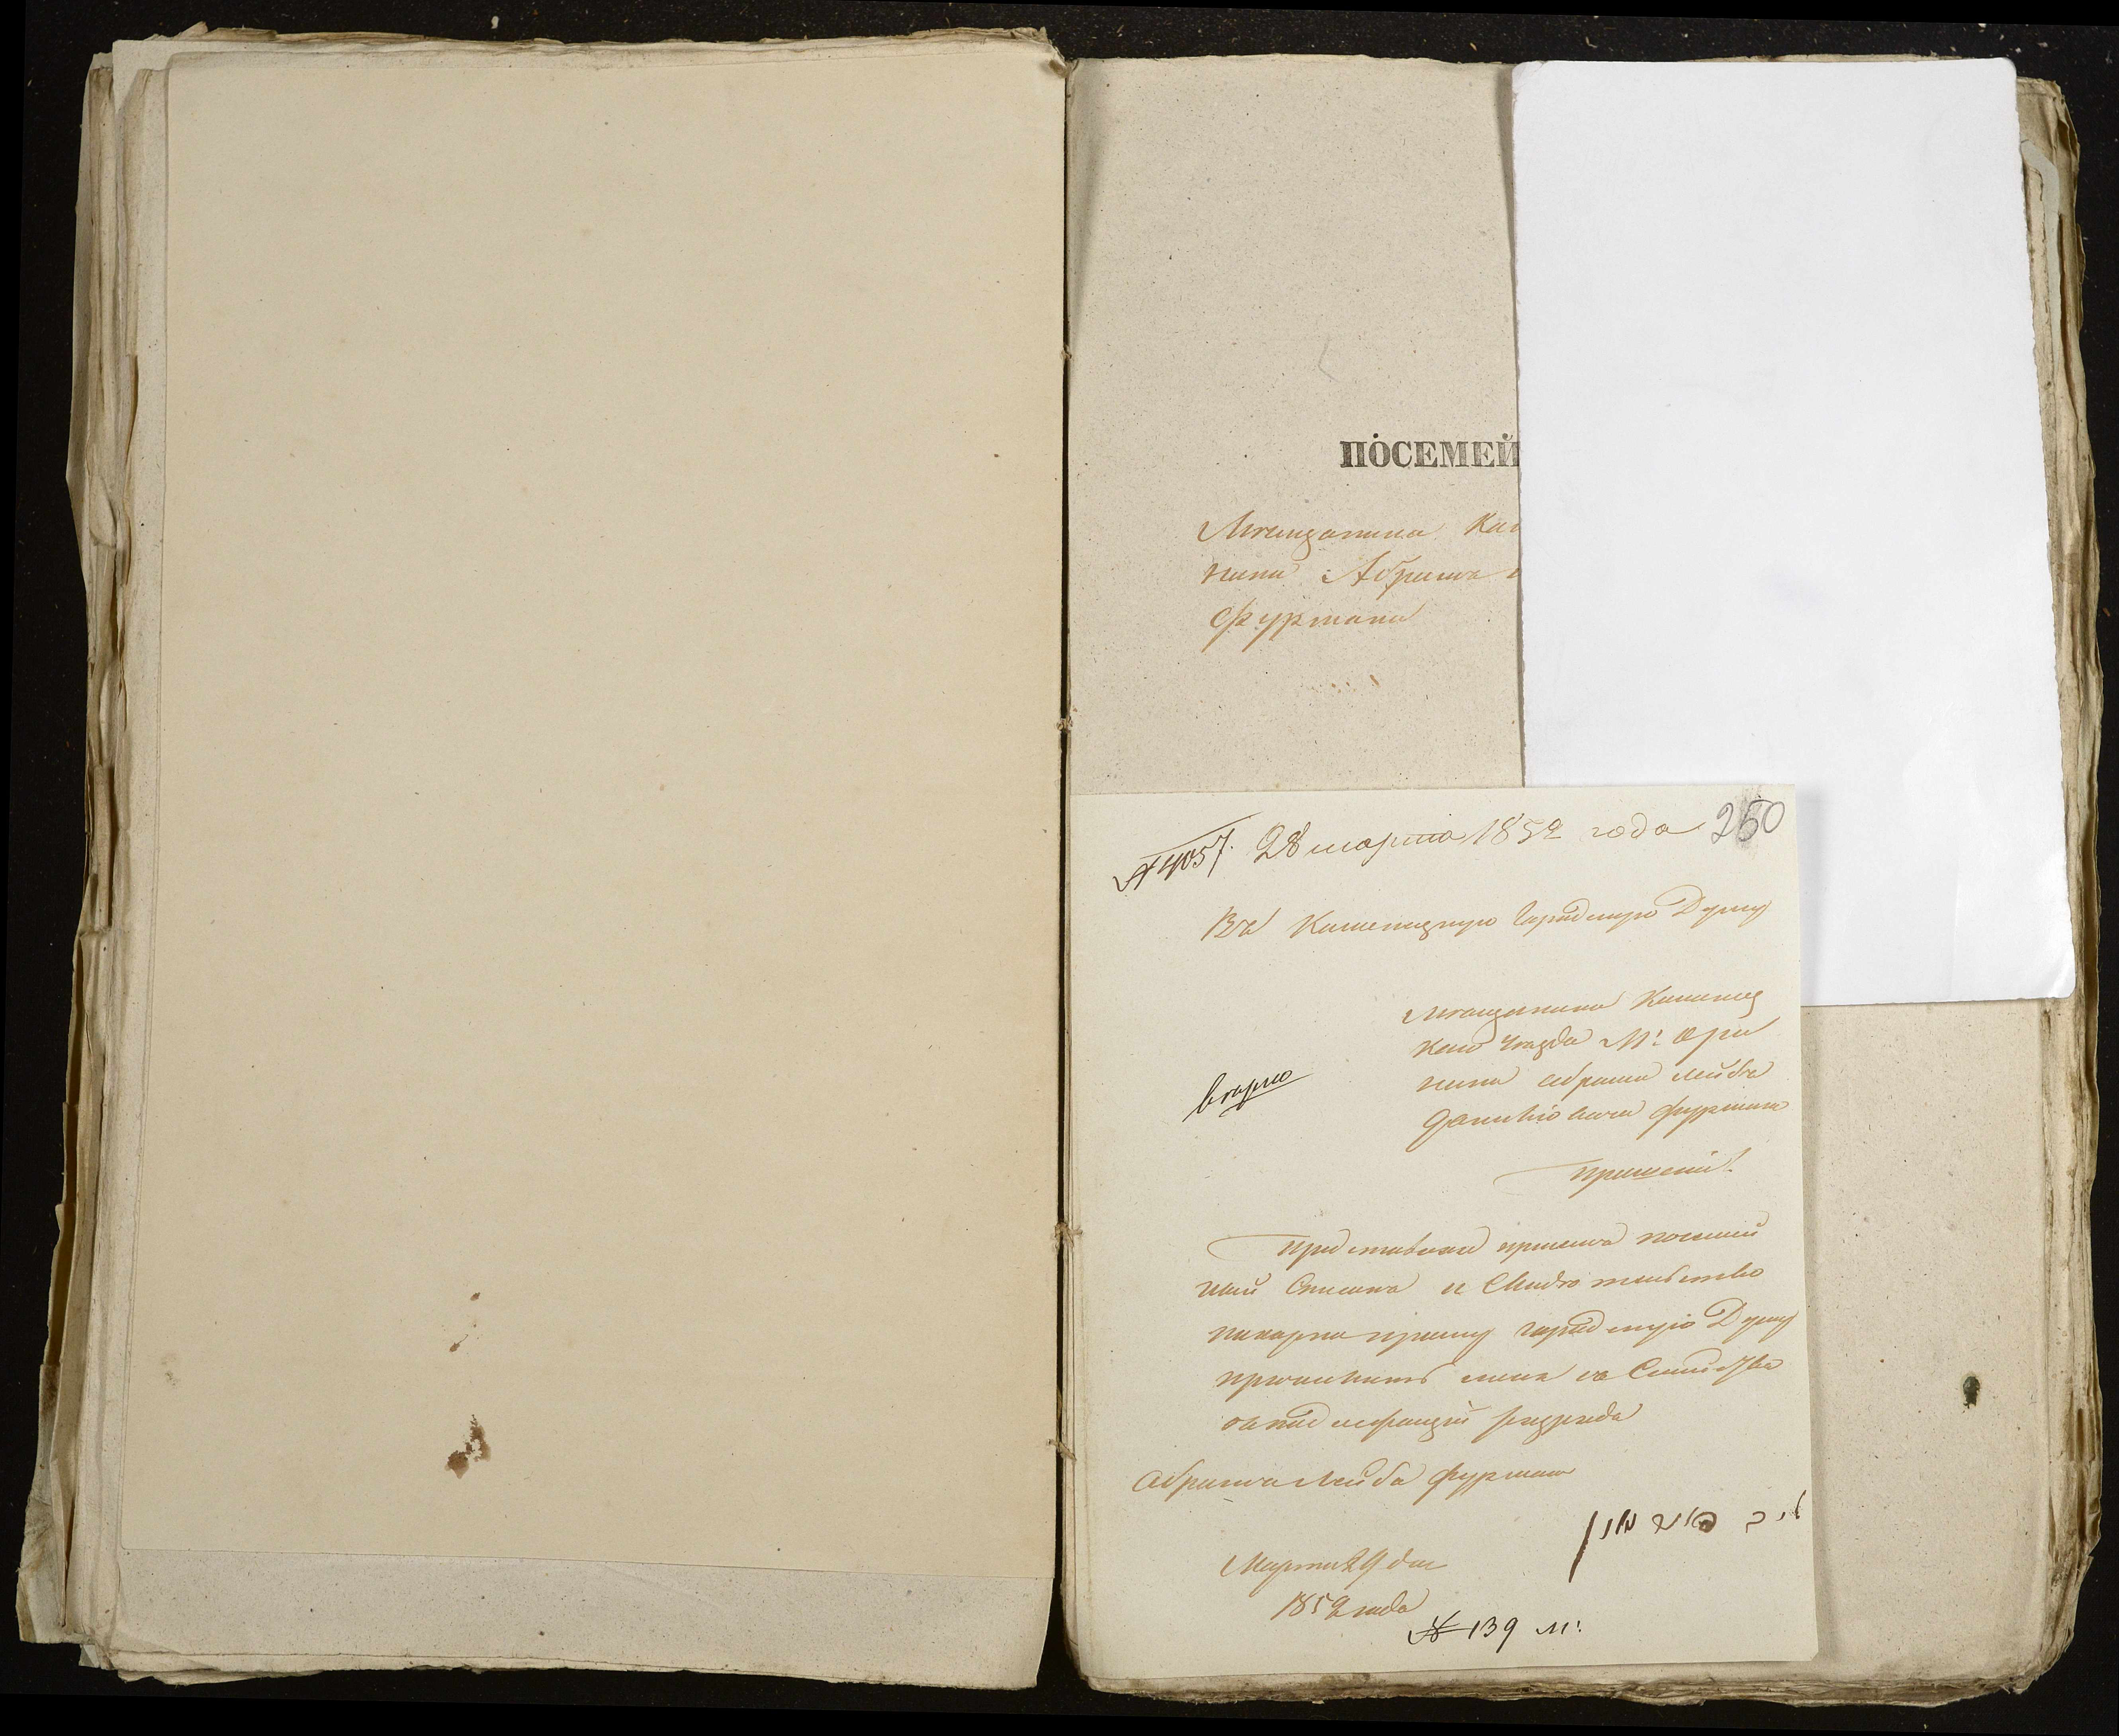 ПОСЕМЕЙ
Мѣщанина Кам
нина Абрама
Фурмана
№ 4057. 28 марта 1852 года 250
Въ Каменецкую Городскую Думу
Мѣщанина Каменец
каго уѣзда М: Ори
нина Абрама Лейбы
Фурмана
вѣрно
Прошеніе.
Представляя присемъ посемей
ный Списокъ и Свидѣтельство
покорно прошу городскую Думу
причислить меня съ Семейства
разряда
Абрамъ Лейба Фурман
ליב פורמאן
Марта 29 дня
1852 года
№ 139 м: